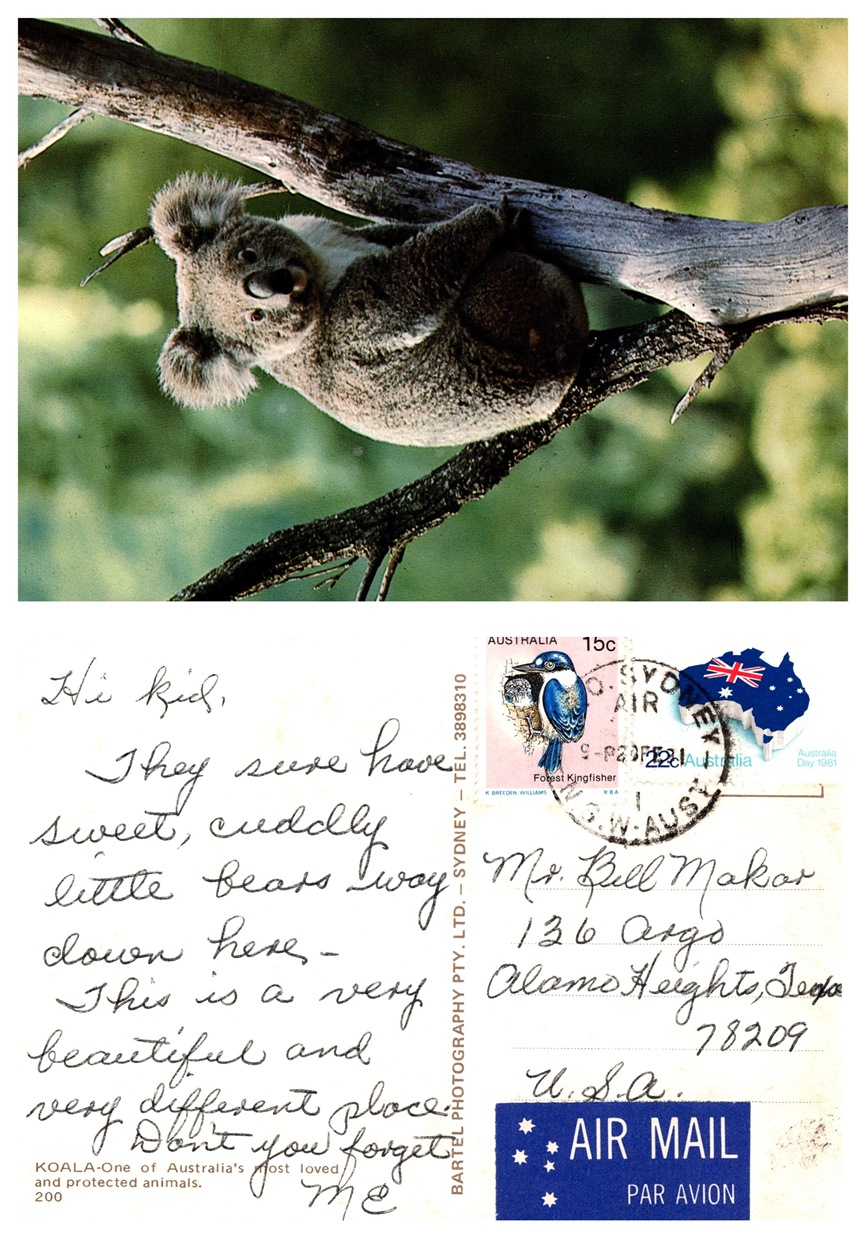 Hi kid,
They sure have
sweet, cuddly
little bears way
down here –
This is a very
beautiful and
very different place.
Don't you forget
ME
KOALA-One of Australia's most loved
and protected animals.
200
BARTEL PHOTOGRAPHY PTY. LTD. – SYDNEY – TEL. 3898310
AUSTRALIA 15c
Forest Kingfisher
K BREEDEN WILLIAMS RBA
22c Australia
Australia
Day 1981
SYDNEY
AIR
N.S.W.-AUST
1
Mr. Bill Makar
136 Argo
Alamo Heights, Texas
78209
U.S.A.
AIR MAIL
PAR AVION